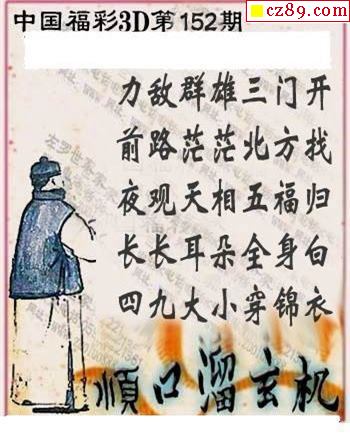 cz89.com
中国福彩3D第152期
力敌群雄三门开
前路茫茫北方找
夜观天相五福归
长长耳朵全身白
四九大小穿锦衣
顺口溜玄机